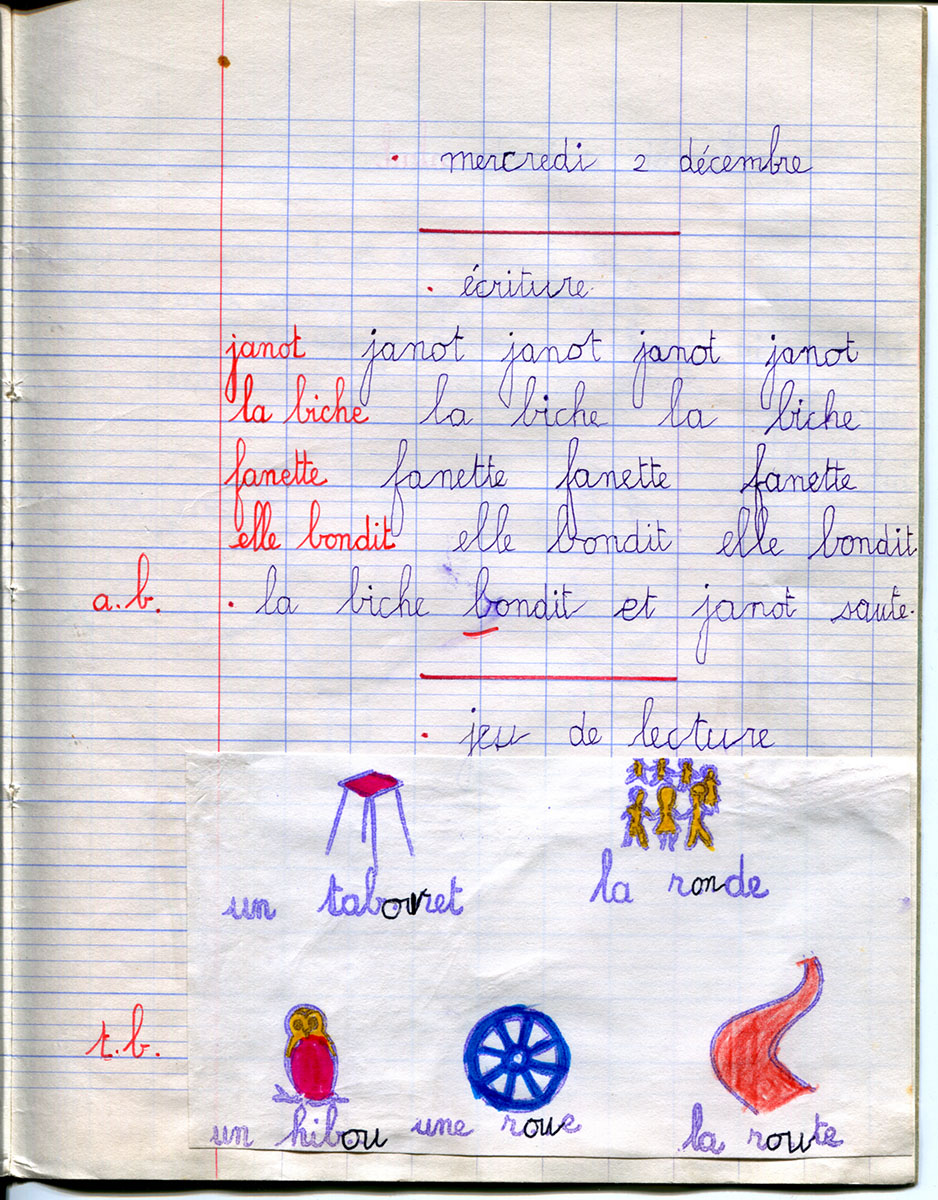 mercredi 2 décembre
écriture
janot janot janot janot janot
la biche la biche la biche
fanette fanette fanette fanette
elle bondit elle bondit elle bondit
a.b. la biche bondit et janot saute.
jeu de lecture
un tabouret la ronde
t.b.
un hibou une roue la route